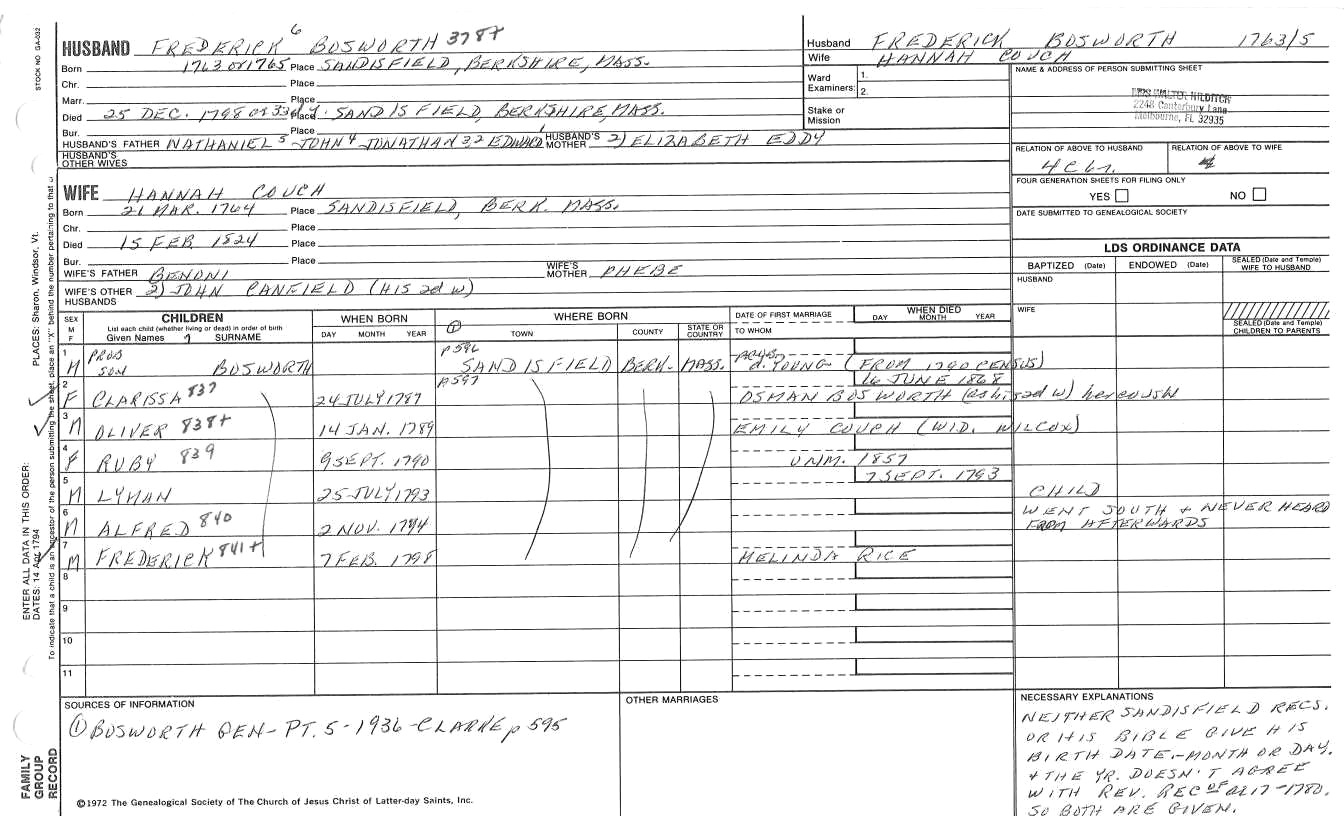 STOCK NO. GA-032
HUSBAND FREDERICK 6 BOSWORTH 378+
Born 1763 or 1765 Place SANDISFIELD, BERKSHIRE, MASS.
Chr. Place
Marr. Place
Died 25 DEC. 1798 Place SANDISFIELD, BERKSHIRE, MASS.
Bur. Place
HUSBAND'S FATHER NATHANIEL 5 JOHN 4 JONATHAN 3,2 EDWARD 1 HUSBAND'S MOTHER 2) ELIZABETH EDDY
HUSBAND'S OTHER WIVES
Husband FREDERICK BOSWORTH 1763/5
Wife HANNAH COUCH
Ward Examiners: 1.
2.
Stake or Mission
NAME & ADDRESS OF PERSON SUBMITTING SHEET
WALTER HILDITCH
2248 Canterbury Lane
Melbourne, FL 32935
RELATION OF ABOVE TO HUSBAND RELATION OF ABOVE TO WIFE
FOUR GENERATION SHEETS FOR FILING ONLY
YES NO
DATE SUBMITTED TO GENEALOGICAL SOCIETY
WIFE HANNAH COUCH
Born 21 MAR. 1764 Place SANDISFIELD, BERK. MASS.
Chr. Place
Died 15 FEB. 1824 Place
Bur. Place
WIFE'S FATHER BENONI WIFE'S MOTHER PHEBE
WIFE'S OTHER HUSBANDS 2) JOHN CANFIELD (HIS 2d W)
LDS ORDINANCE DATA
BAPTIZED (Date) ENDOWED (Date) SEALED (Date and Temple) WIFE TO HUSBAND
HUSBAND
WIFE
SEALED (Date and Temple) CHILDREN TO PARENTS
SEX M F CHILDREN List each child (whether living or dead) in order of birth Given Names 7 SURNAME
WHEN BORN DAY MONTH YEAR
WHERE BORN 1 TOWN COUNTY STATE OR COUNTRY
DATE OF FIRST MARRIAGE TO WHOM
WHEN DIED DAY MONTH YEAR
1 M PROB SON BOSWORTH p596 SANDISFIELD BERK. MASS. d. YOUNG (FROM 1790 CENSUS)
2 F CLARISSA 837 24 JULY 1787 p597 16 JUNE 1868
OSMAN BOSWORTH (as his 2d w) her cousin
3 M OLIVER 838+ 14 JAN. 1789 EMILY COUCH (WID. WILCOX)
4 F RUBY 839 9 SEPT. 1790 UNM. 1857
5 M LYMAN 25 JULY 1793 7 SEPT. 1793 CHILD
6 M ALFRED 840 2 NOV. 1794 WENT SOUTH + NEVER HEARD FROM AFTERWARDS
7 M FREDERICK 841+ 7 FEB. 1798 MELINDA RICE
8
9
10
11
SOURCES OF INFORMATION
1 BOSWORTH GEN - PT. 5 - 1936 - CLARKE p 595
OTHER MARRIAGES
NECESSARY EXPLANATIONS
NEITHER SANDISFIELD RECS.
OR HIS BIBLE GIVE HIS
BIRTH DATE, - MONTH OR DAY.
+ THE YR. DOESN'T AGREE
WITH REV. REC OF 17-1780.
SO BOTH ARE GIVEN.
©1972 The Genealogical Society of The Church of Jesus Christ of Latter-day Saints, Inc.
FAMILY GROUP RECORD
ENTER ALL DATA IN THIS ORDER:
DATES: 14 Apr 1794
PLACES: Sharon, Windsor, Vt.
To indicate that a child is an ancestor of the person submitting the sheet, place an "X" behind the number pertaining to that